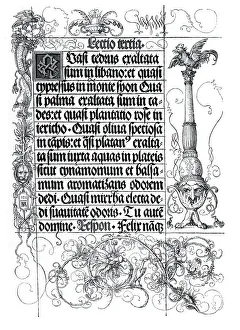 Lectio tertia.
Quasi cedrus exaltata
sum in libano: et quasi
cypressus in monte syon Qua
si palma exaltata sum in ca-
des: et quasi plantatio rose in
iericho · Quasi oliva speciosa
in cāpis: et q̄si platan9 exalta
ta sum iuxta aquas in plateis
sicut cynamomum et balsa-
mum aromatizans odorem
dedi · Quasi mirrha electa de-
di suavitatē odoris · Tu autē
domine · Respon · Felix